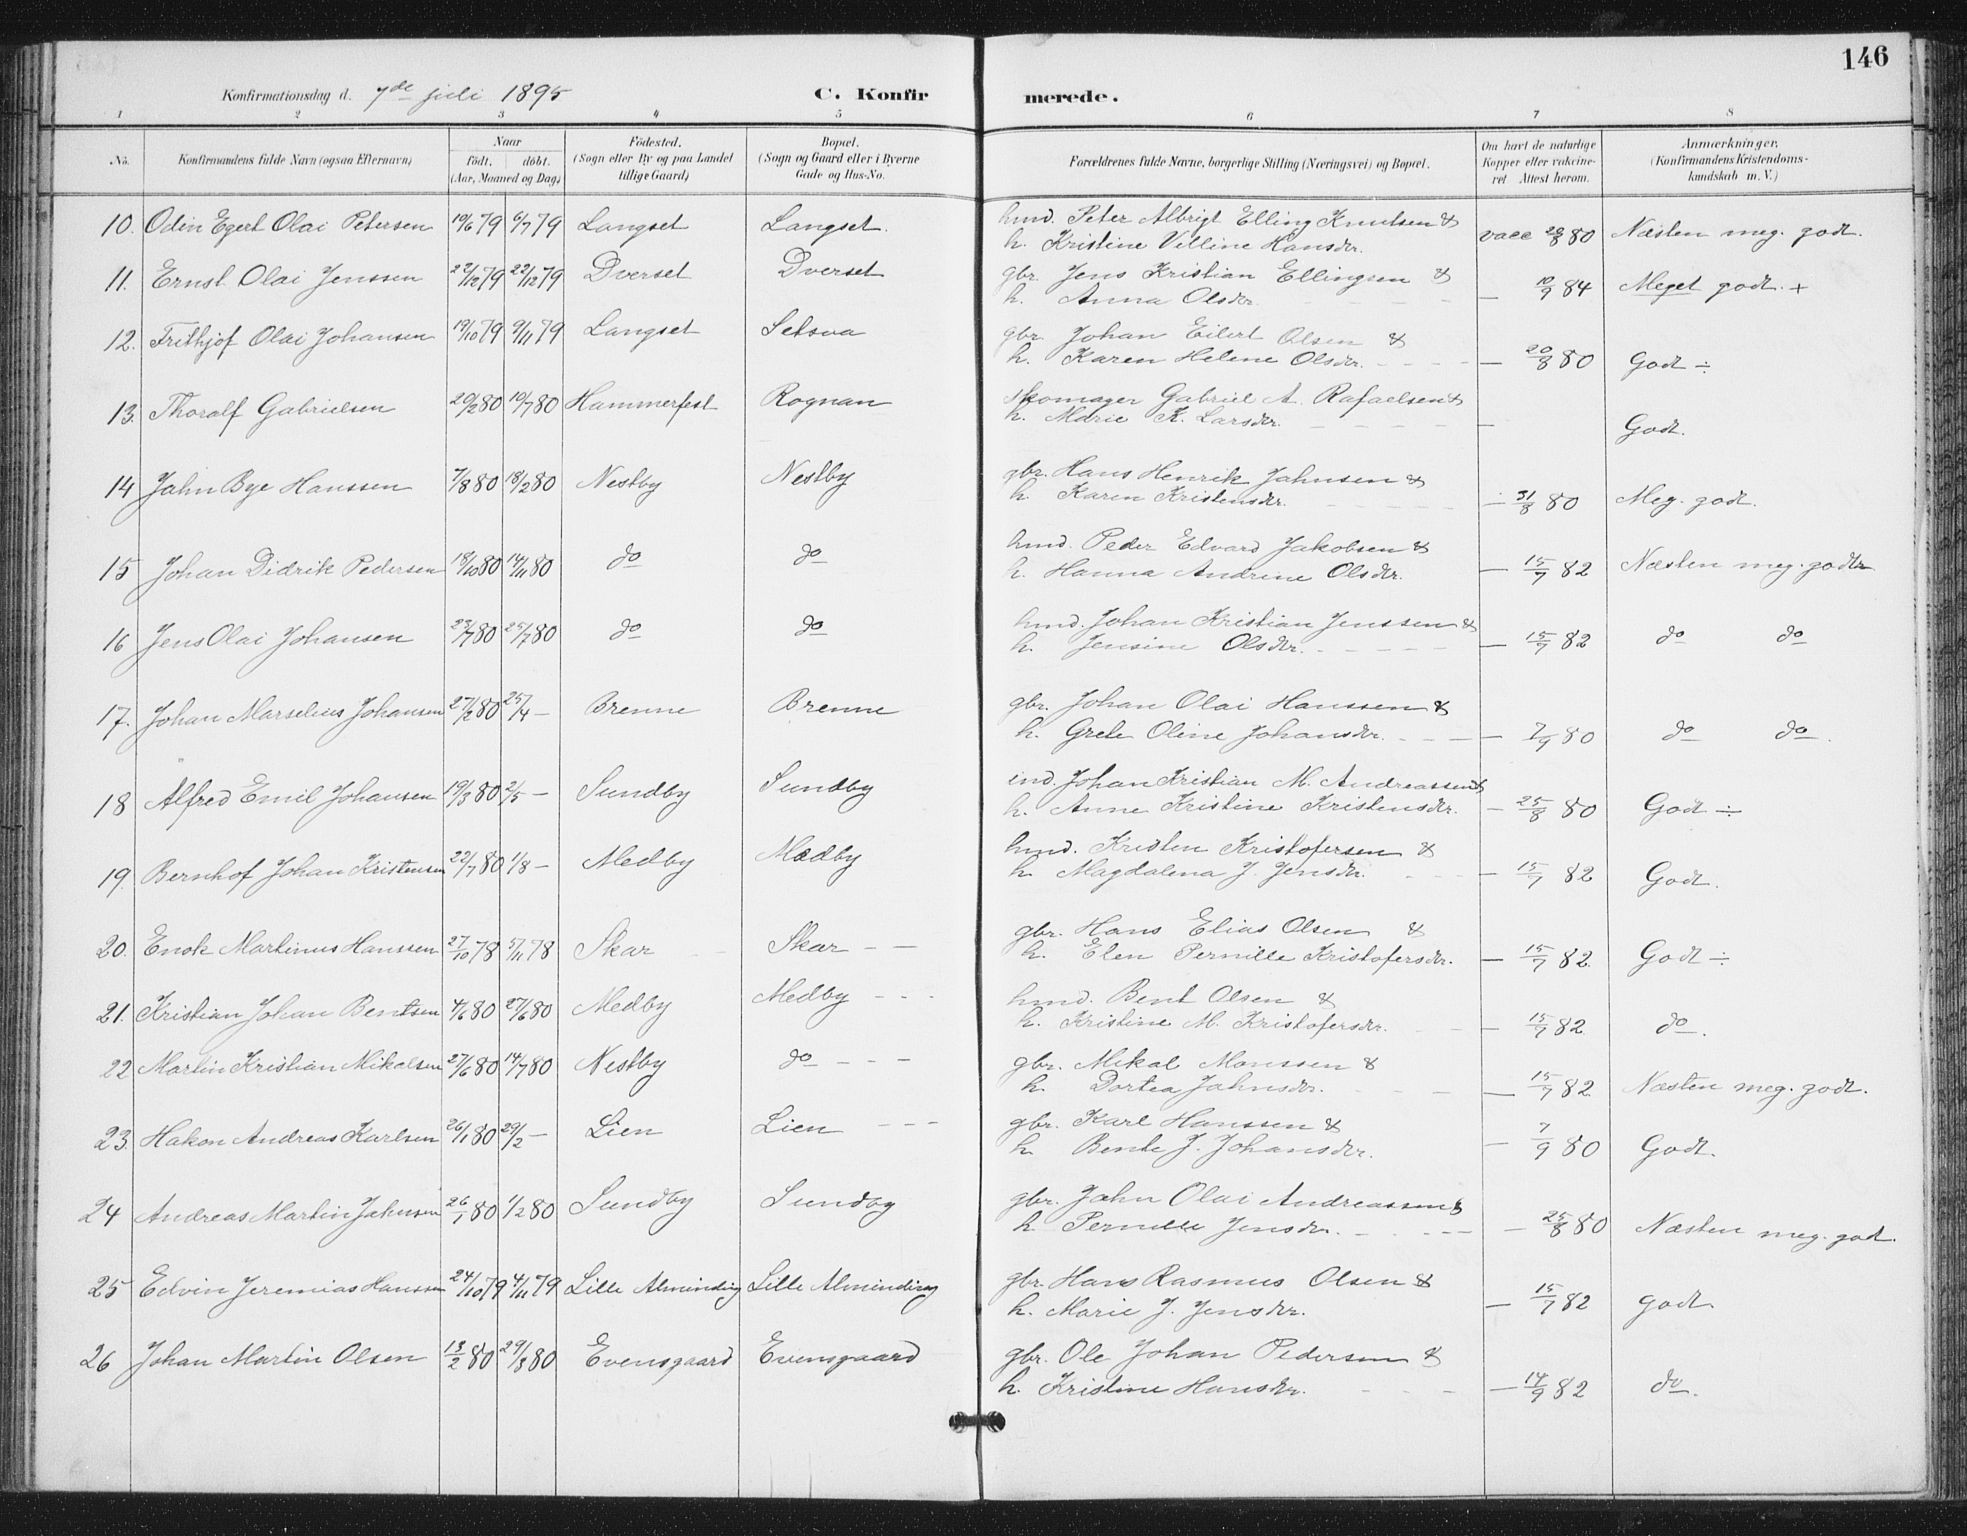 146
Konfirmationsdag d. 7de juli 1895 C. Konfirmerede.
1 2 3 4 5 6 7 8
No. Konfirmandens fulde Navn (ogsaa Efternavn) Naar født. døbt. (Aar, Maaned og Dag) Födested. (Sogn eller By og paa Landet tillige Gaard) Bopæl. (Sogn og Gaard eller i Byerne Gade og Hus-No. Forældrenes fulde Navne, borgerlige Stilling (Næringsvei) og Bopæl. Om havt de naturlige Kopper eller vakcineret Attest herom. Anmærkninger. (Konfirmandens Kristendomskundskab m. V.)
10. Odin Egert Olai Petersen 10/6 79 6/7 79 Langset Langset. hmd. Peter Albrigt Elling Knutsen &
h. Kristine Velline Hansdtr. vacc 20/8 80 Næsten meg. godt.
11. Ernst Olai Jenssen 22/12 79 22/12 79 Dverset Dverset gbr. Jens Kristian Ellingsen &
h. Anna Olsdtr. — 10/9 84 Meget godt. +
12. Frithjof Olai Johansen 19/10 79 9/11 79 Langset Setsva gbr. Johan Eilert Olsen &
h. Karen Helene Olsdtr. — 20/8 80 Godt ÷
13. Thoralf Gabrielsen 20/2 80 10/7 80 Hammerfest Rognan Skomager Gabriel A. Rafaelsen &
h. Marie K. Larsdtr. — Godt.
14 Jahn Bye Hanssen 7/8 80 18/2 80 Nestby Nestby gbr. Hans Henrik Jahnsen &
h. Karen Kristensdtr. — 31/8 80 Meg. godt.
15 Johan Didrik Pedersen 18/10 80 14/11 80 do do hmd. Peder Edvard Jakobsen &
h. Hanna Andrine Olsdtr. — 15/7 82 Næsten meg. godt
16 Jens Olai Johansen 23/7 80 25/7 80 do do hmd. Johan Kristian Jenssen &
h. Jensine Olsdtr. — 15/7 82 do do
17. Johan Marselius Johansen 27/2 80 25/4 — Brenne Brenne gbr. Johan Olai Hanssen &
h. Grete Oline Johansdtr. — 7/9 80 do do.
18 Alfred Emil Johansen 19/3 80 2/5 — Sundby Sundby ind. Johan Kristian M. Andreassen &
h. Anne Kristine Kristensdtr. — 25/8 80 Godt ÷
19. Bernhof Johan Kristensen 22/7 80 1/8 — Medby Medby hmd. Kristen Kristofersen &
h. Magdalena J. Jensdtr. — 15/7 82 Godt.
20. Enok Martinus Hanssen 27/10 78 5/11 78 Skar Skar — — gbr. Hans Elias Olsen &
h. Elen Pernille Kristofersdtr. — 15/7 82. Godt ÷
21. Kristian Johan Bentsen 4/6 80 27/6 80 Medby Medby - - - hmd. Bent Olsen &
h. Kristine M. Kristofersdtr. — 15/7 82. do.
22 Martin Kristian Mikalsen 27/6 80 14/7 80 Nestby do - - - gbr. Mikal Monssen &
h. Dortea Jahnsdtr. — 15/7 82. Næsten meg. godt.
23. Hakon Andreas Karlsen 26/1 80 29/2 — Lien Lien - - - gbr. Karl Hanssen &
h. Bente J. Johansdtr. — 7/9 80 Godt.
24 Andreas Martin Jahnsen 26/1 80 1/2 80 Sundby Sundby gbr. Jahn Olai Andreassen &
h. Pernille Jensdtr. — 25/8 80 Næsten meg. godt.
25 Edvin Jeremias Hanssen 24/10 79 4/11 79 Lille Alminding Lille Alminding gbr. Hans Rasmus Olsen &
h. Marie J. Jensdtr. — 15/7 82 godt.
26 Johan Martin Olsen 13/2 80 29/3 80 Evensgaard Evensgaard gbr. Ole Johan Pedersen &
h. Kristine Hansdtr. — 14/9 82 do.